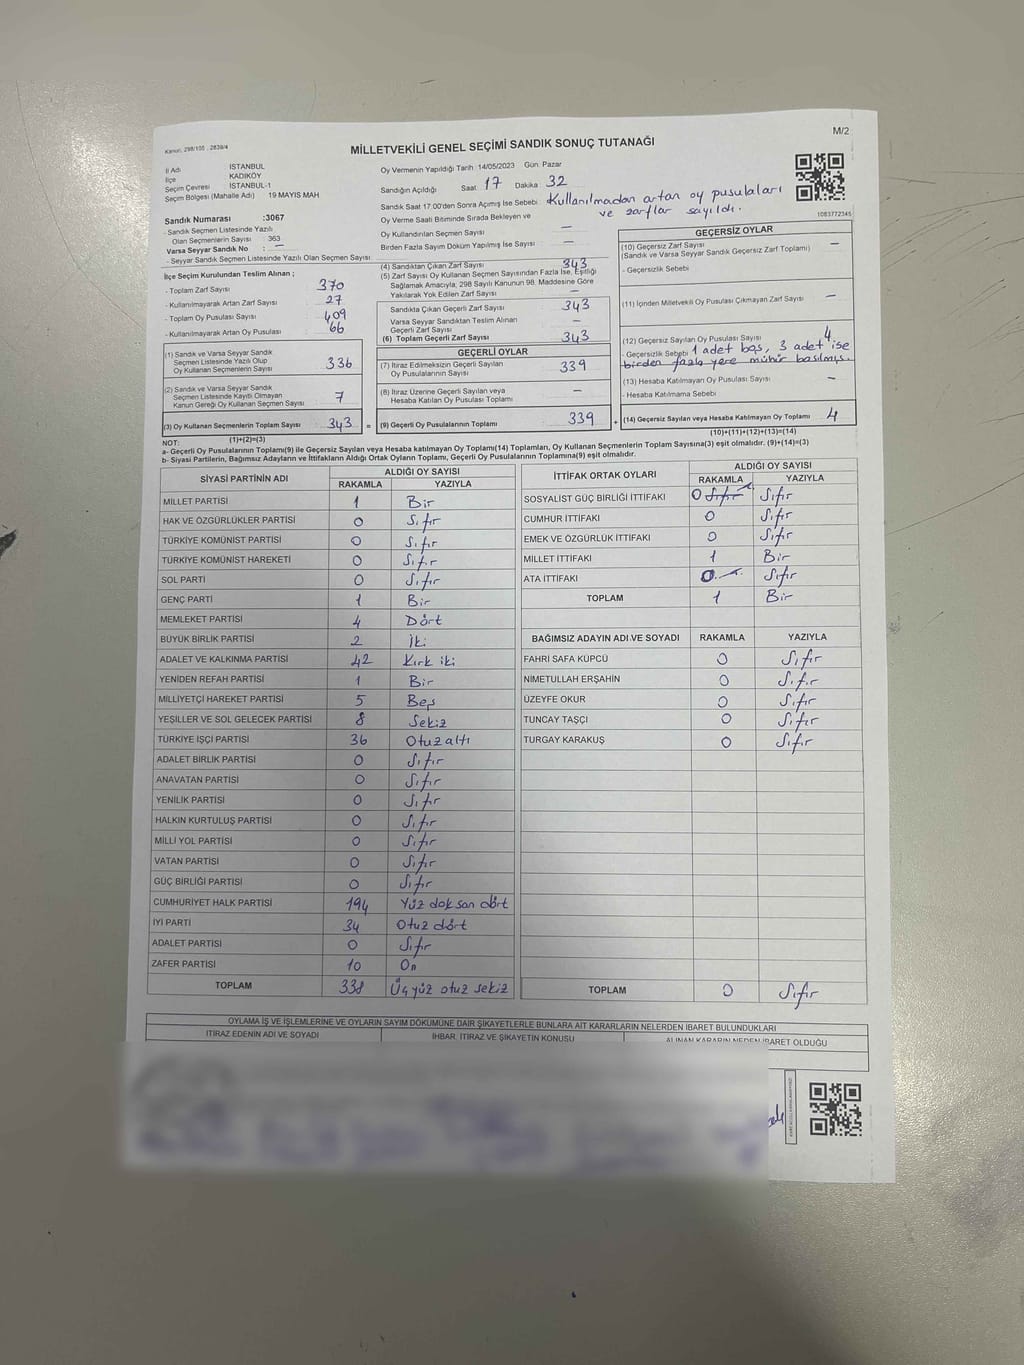 M/2
Kanun: 298/105 , 2839/4
MİLLETVEKİLİ GENEL SEÇİMİ SANDIK SONUÇ TUTANAĞI
İl Adı İSTANBUL
İlçe KADIKÖY
Seçim Çevresi İSTANBUL-1
Seçim Bölgesi (Mahalle Adı) 19 MAYIS MAH
Sandık Numarası :3067
- Sandık Seçmen Listesinde Yazılı
Olan Seçmenlerin Sayısı : 363
Varsa Seyyar Sandık No : —
- Seyyar Sandık Seçmen Listesinde Yazılı Olan Seçmen Sayısı:
Oy Vermenin Yapıldığı Tarih: 14/05/2023 Gün: Pazar
Sandığın Açıldığı Saat 17 Dakika: 32
Sandık Saat 17:00'den Sonra Açılmış İse Sebebi: Kullanılmadan artan oy pusulaları
ve zarflar sayıldı.
Oy Verme Saati Bitiminde Sırada Bekleyen ve
Oy Kullandırılan Seçmen Sayısı —
Birden Fazla Sayım Döküm Yapılmış İse Sayısı: —
1083772345
İlçe Seçim Kurulundan Teslim Alınan ;
- Toplam Zarf Sayısı 370
- Kullanılmayarak Artan Zarf Sayısı 27
- Toplam Oy Pusulası Sayısı 409
- Kullanılmayarak Artan Oy Pusulası 66
(1) Sandık ve Varsa Seyyar Sandık
Seçmen Listesinde Yazılı Olup
Oy Kullanan Seçmenlerin Sayısı 336
(2) Sandık ve Varsa Seyyar Sandık
Seçmen Listesinde Kayıtlı Olmayan
Kanun Gereği Oy Kullanan Seçmen Sayısı 7
(3) Oy Kullanan Seçmenlerin Toplam Sayısı 343 =
(1)+(2)=(3)
(4) Sandıktan Çıkan Zarf Sayısı 343
(5) Zarf Sayısı Oy Kullanan Seçmen Sayısından Fazla İse, Eşitliği
Sağlamak Amacıyla, 298 Sayılı Kanunun 98. Maddesine Göre
Yakılarak Yok Edilen Zarf Sayısı —
Sandıkta Çıkan Geçerli Zarf Sayısı 343
Varsa Seyyar Sandıktan Teslim Alınan
Geçerli Zarf Sayısı —
(6) Toplam Geçerli Zarf Sayısı 343
GEÇERLİ OYLAR
(7) İtiraz Edilmeksizin Geçerli Sayılan
Oy Pusulalarının Sayısı 339
(8) İtiraz Üzerine Geçerli Sayılan veya
Hesaba Katılan Oy Pusulası Toplamı —
(9) Geçerli Oy Pusulalarının Toplamı 339 +
GEÇERSİZ OYLAR
(10) Geçersiz Zarf Sayısı —
(Sandık ve Varsa Seyyar Sandık Geçersiz Zarf Toplamı)
- Geçersizlik Sebebi
(11) İçinden Milletvekili Oy Pusulası Çıkmayan Zarf Sayısı —
(12) Geçersiz Sayılan Oy Pusulası Sayısı 4
- Geçersizlik Sebebi 1 adet boş, 3 adet ise
birden fazla yere mühür basılmış.
(13) Hesaba Katılmayan Oy Pusulası Sayısı —
- Hesaba Katılmama Sebebi
(14) Geçersiz Sayılan veya Hesaba Katılmayan Oy Toplamı 4
(10)+(11)+(12)+(13)=(14)
NOT:
a- Geçerli Oy Pusulalarının Toplamı(9) ile Geçersiz Sayılan veya Hesaba katılmayan Oy Toplamı(14) Toplamları, Oy Kullanan Seçmenlerin Toplam Sayısına(3) eşit olmalıdır. (9)+(14)=(3)
b- Siyasi Partilerin, Bağımsız Adayların ve İttifakların Aldığı Ortak Oyların Toplamı, Geçerli Oy Pusulalarının Toplamına(9) eşit olmalıdır.
SİYASİ PARTİNİN ADI ALDIĞI OY SAYISI
RAKAMLA YAZIYLA
MİLLET PARTİSİ 1 Bir
HAK VE ÖZGÜRLÜKLER PARTİSİ 0 Sıfır
TÜRKİYE KOMÜNİST PARTİSİ 0 Sıfır
TÜRKİYE KOMÜNİST HAREKETİ 0 Sıfır
SOL PARTİ 0 Sıfır
GENÇ PARTİ 1 Bir
MEMLEKET PARTİSİ 4 Dört
BÜYÜK BİRLİK PARTİSİ 2 İki
ADALET VE KALKINMA PARTİSİ 42 Kırk iki
YENİDEN REFAH PARTİSİ 1 Bir
MİLLİYETÇİ HAREKET PARTİSİ 5 Beş
YEŞİLLER VE SOL GELECEK PARTİSİ 8 Sekiz
TÜRKİYE İŞÇİ PARTİSİ 36 Otuz altı
ADALET BİRLİK PARTİSİ 0 Sıfır
ANAVATAN PARTİSİ 0 Sıfır
YENİLİK PARTİSİ 0 Sıfır
HALKIN KURTULUŞ PARTİSİ 0 Sıfır
MİLLİ YOL PARTİSİ 0 Sıfır
VATAN PARTİSİ 0 Sıfır
GÜÇ BİRLİĞİ PARTİSİ 0 Sıfır
CUMHURİYET HALK PARTİSİ 194 Yüz doksan dört
İYİ PARTİ 34 Otuz dört
ADALET PARTİSİ 0 Sıfır
ZAFER PARTİSİ 10 On
TOPLAM 338 Üç yüz otuz sekiz
İTTİFAK ORTAK OYLARI ALDIĞI OY SAYISI
RAKAMLA YAZIYLA
SOSYALİST GÜÇ BİRLİĞİ İTTİFAKI 0 Sıfır Sıfır
CUMHUR İTTİFAKI 0 Sıfır
EMEK VE ÖZGÜRLÜK İTTİFAKI 0 Sıfır
MİLLET İTTİFAKI 1 Bir
ATA İTTİFAKI 0 Sıfır
TOPLAM 1 Bir
BAĞIMSIZ ADAYIN ADI VE SOYADI RAKAMLA YAZIYLA
FAHRİ SAFA KÜPCÜ 0 Sıfır
NİMETULLAH ERŞAHİN 0 Sıfır
ÜZEYFE OKUR 0 Sıfır
TUNCAY TAŞÇI 0 Sıfır
TURGAY KARAKUŞ 0 Sıfır
TOPLAM 0 Sıfır
OYLAMA İŞ VE İŞLEMLERİNE VE OYLARIN SAYIM DÖKÜMÜNE DAİR ŞİKAYETLERLE BUNLARA AİT KARARLARIN NELERDEN İBARET BULUNDUKLARI
İTİRAZ EDENİN ADI VE SOYADI İHBAR, İTİRAZ VE ŞİKAYETİN KONUSU ALINAN KARARIN NEDEN İBARET OLDUĞU